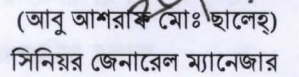 (আবু আশরাফ মোঃ ছালেহ্)
সিনিয়র জেনারেল ম্যানেজার